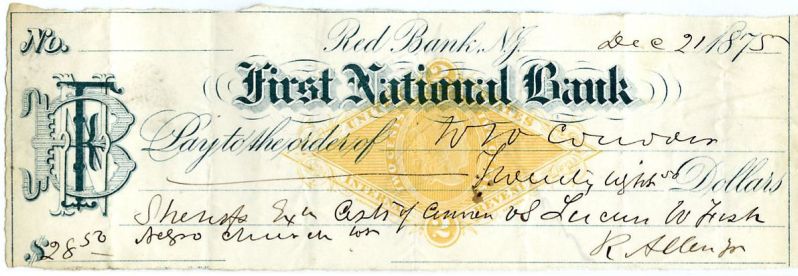 No. Red Bank, N.J. Dec 21 1875
First National Bank
Pay to the order of Wm Conover
Twenty eight 50 Dollars
Sheriffs Exn Costs of Conover vs W Fish
$28.50 Negro Church
R Allen Jr